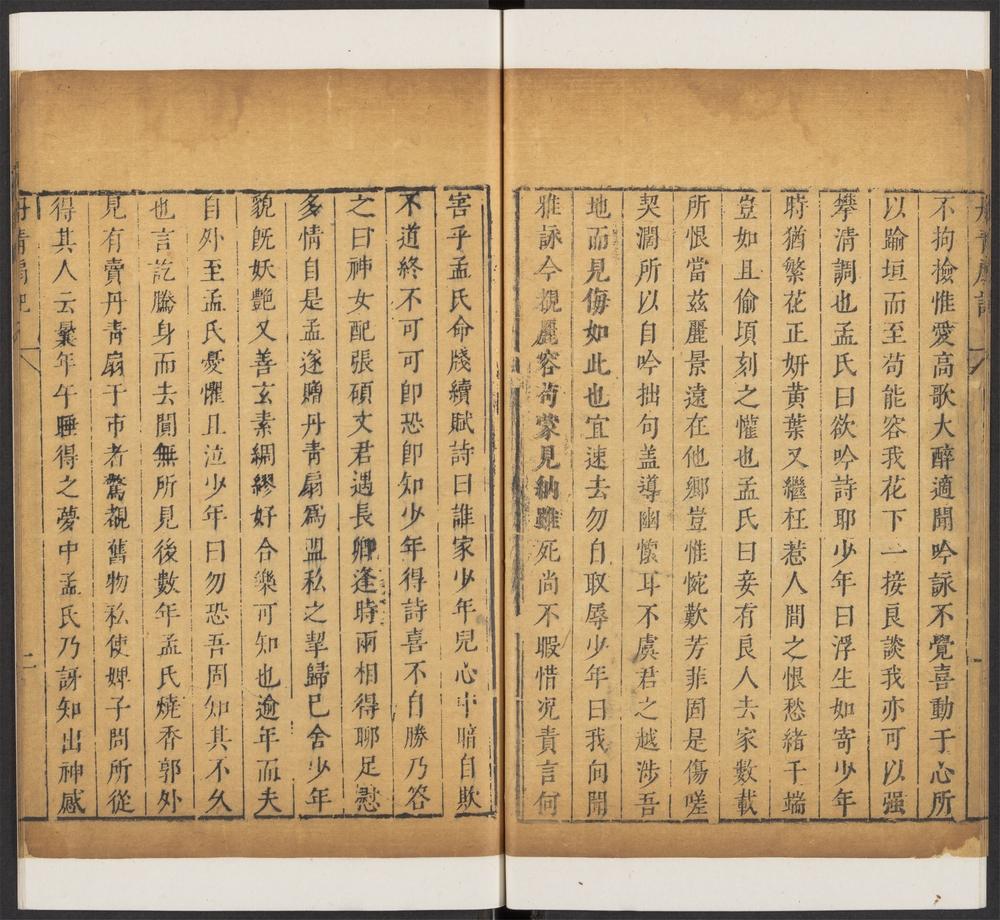 不拘撿惟愛高歌大醉適聞吟詠不覺喜動于心所
以踰垣而至苟能容我花下一接良談我亦可以强
攀清調也孟氏曰欲吟詩耶少年曰浮生如寄少年
時猶繁花正妍黃葉又繼枉惹人間之恨愁緒千端
豈如且偷頃刻之懽也孟氏曰妾有良人去家數載
所恨當兹麗景遠在他鄉豈惟惋歎芳菲固是傷嗟
契濶所以自吟拙句盖導幽懷耳不虞君之越涉吾
地而見侮如此也宜速去勿自取辱少年曰我向聞
雅詠今覩麗容苟蒙見納雖死尚不暇惜况責言何
害乎孟氏命牋續賦詩曰誰家少年兒心中暗自欺
不道終不可可卽恐卽知少年得詩喜不自勝乃答
之曰神女配張碩文君遇長卿逢時兩相得聊足慰
多情自是孟遂贈丹青扇爲盟私之挈歸巳舍少年
貌旣妖艷又善玄素綢繆好合樂可知也逾年而夫
自外至孟氏憂懼且泣少年曰勿恐吾固知其不久
也言訖騰身而去闃無所見後數年孟氏燒香郭外
見有賣丹青扇于市者驚覩舊物私使婢子問所從
得其人云曩年午睡得之夢中孟氏乃訝知出神感
丹青扇記
二